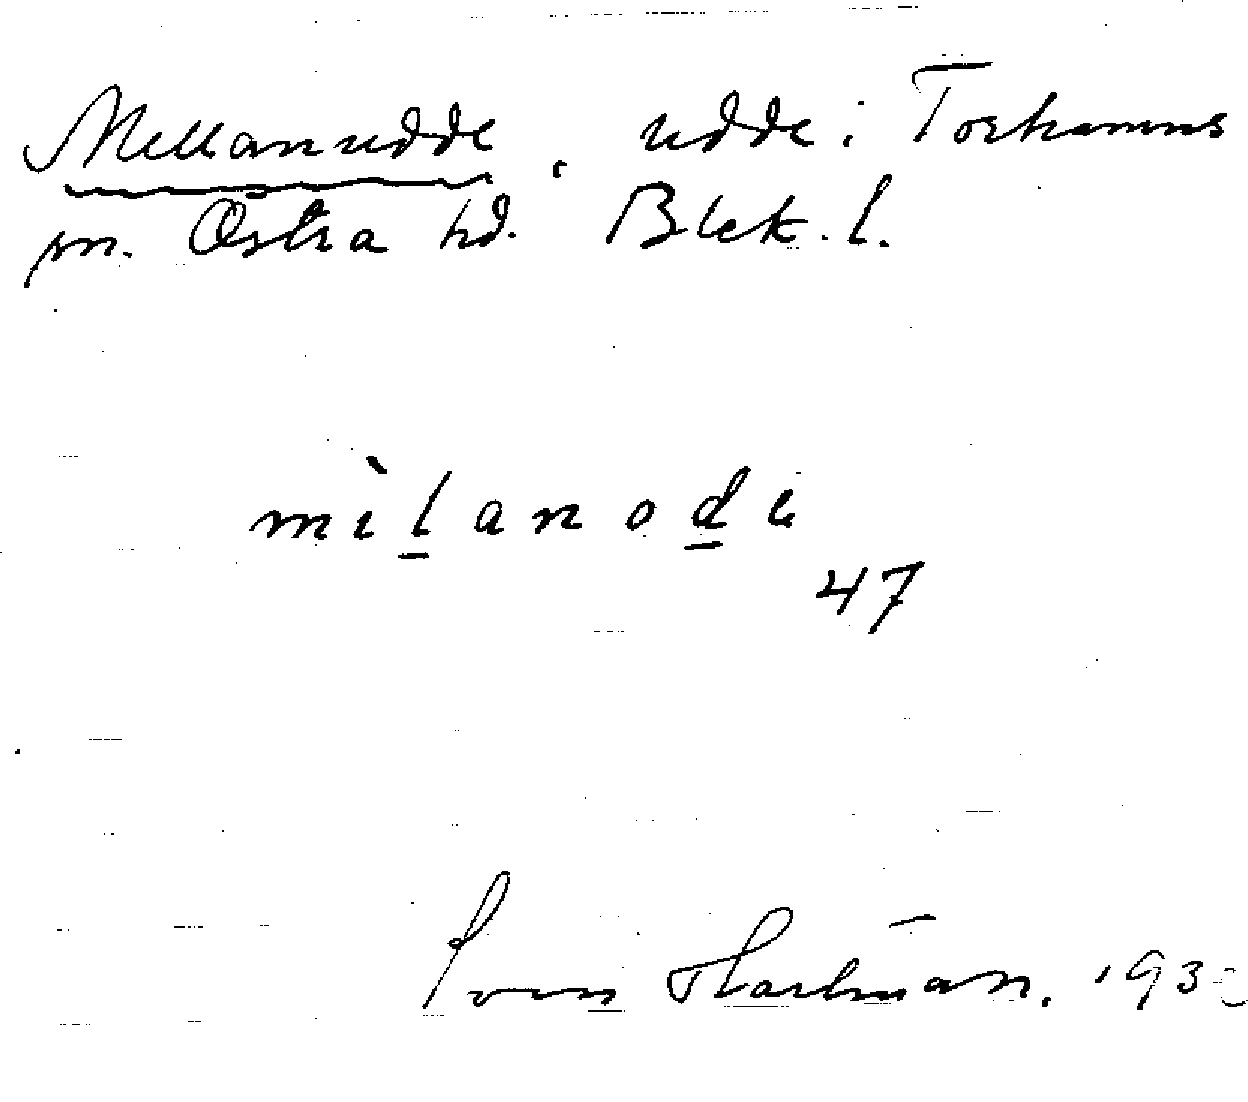 Mellanudde, udde i Torhamns
sn. Östra hd. Blek. l.
mèlanode
47
Sven Hartman. 193